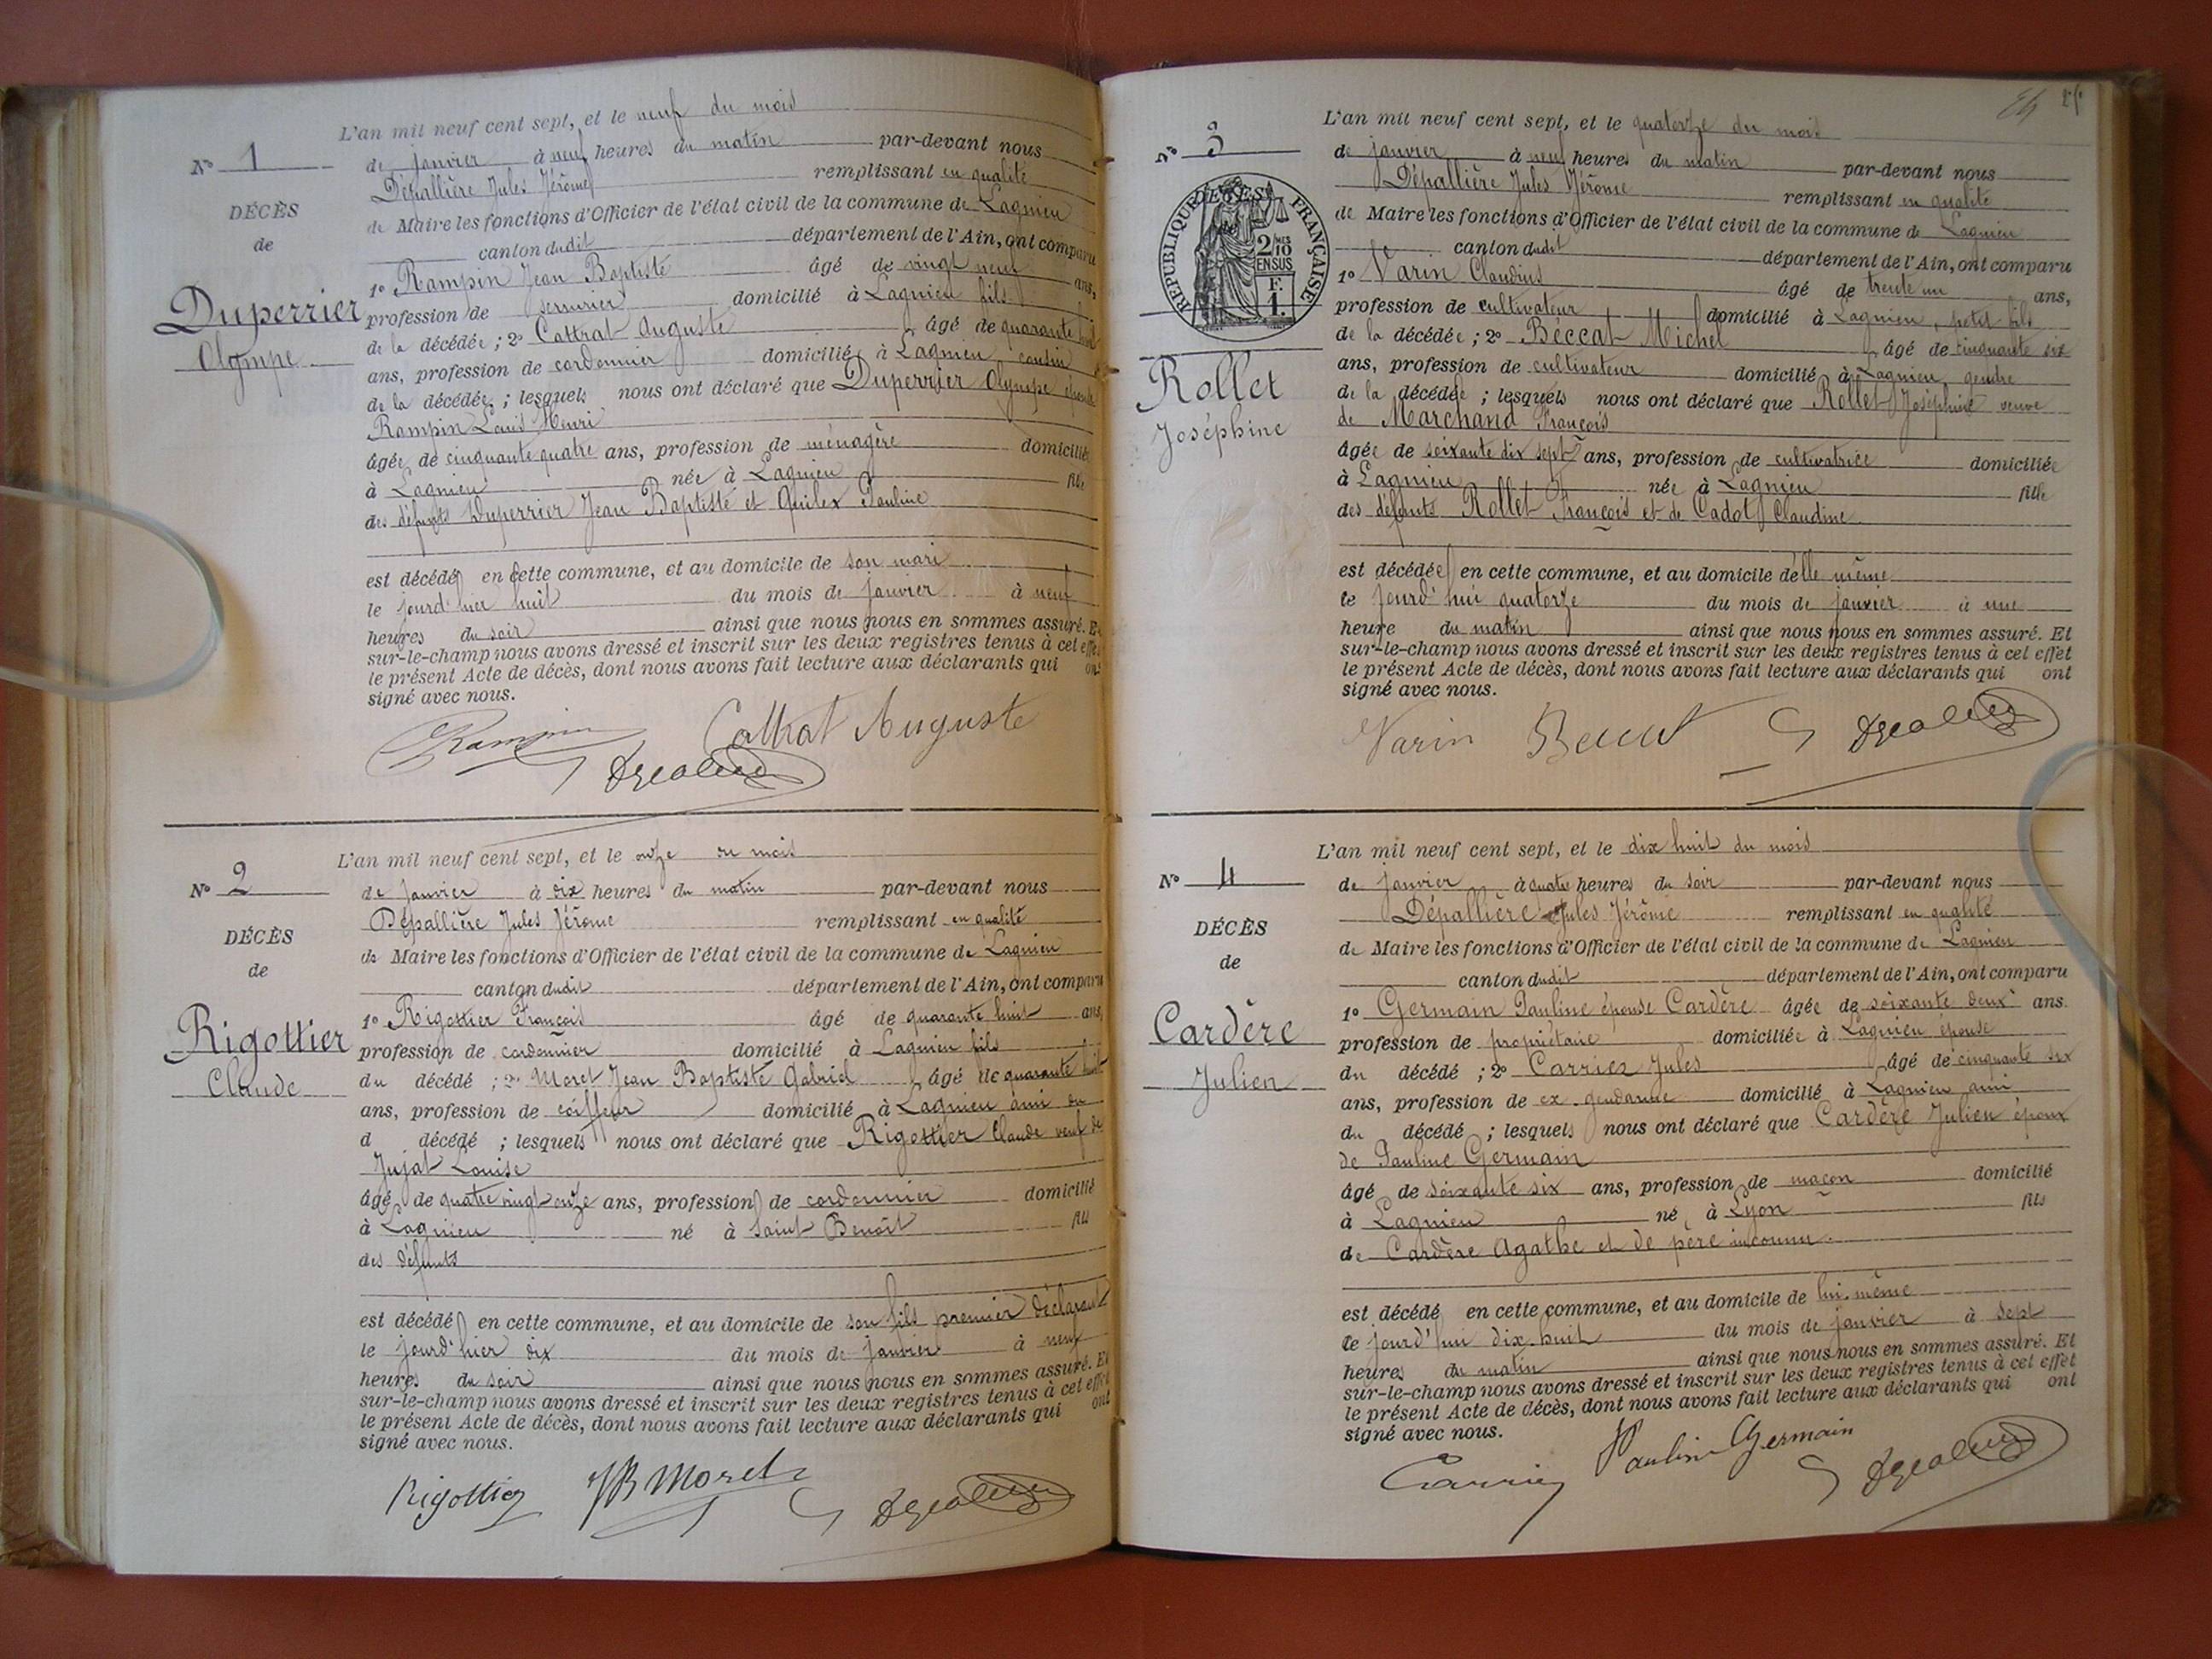 L'an mil neuf cent sept, et le neuf du mois
N° 1
de janvier à neuf heures du matin par-devant nous
Dépallière Jules Jérôme remplissant en qualité
DÉCÈS
de Maire les fonctions d'Officier de l'état civil de la commune de Lagnieu
de
canton dudit département de l'Ain, ont comparu
1° Rampin Jean Baptiste âgé de vingt neuf ans,
Duperrier
profession de serrurier domicilié à Lagnieu fils
de la décédée ; 2° Cattrat Auguste âgé de quarante huit
Olympe
ans, profession de cordonnier domicilié à Lagnieu cousin
de la décédée ; lesquels nous ont déclaré que Duperrier Olympe épouse
Rampin Louis Henri
âgée de cinquante quatre ans, profession de ménagère domiciliée
à Lagnieu née à Lagnieu fille
des défunts Duperrier Jean Baptiste et Pauline
est décédée en cette commune, et au domicile de son mari
le jourd'hier huit du mois de janvier à neuf
heures du soir ainsi que nous nous en sommes assuré. Et
sur-le-champ nous avons dressé et inscrit sur les deux registres tenus à cet effet
le présent Acte de décès, dont nous avons fait lecture aux déclarants qui ont
signé avec nous.
Rampin Cattrat Auguste
L'an mil neuf cent sept, et le onze du mois
N° 2
de janvier à dix heures du matin par-devant nous
Dépallière Jules Jérome remplissant en qualité
DÉCÈS
de Maire les fonctions d'Officier de l'état civil de la commune de Lagnieu
de
canton dudit département de l'Ain, ont comparu
1° Rigottier François âgé de quarante huit ans,
Rigottier
profession de cordonnier domicilié à Lagnieu fils
du décédé ; 2° Moret Jean Baptiste Gabriel âgé de quarante huit
Claude
ans, profession de coiffeur domicilié à Lagnieu ami du
d décédé ; lesquels nous ont déclaré que Rigottier Claude veuf de
Jujat Louise
âgé de quatre vingt onze ans, profession de cordonnier domicilié
à Lagnieu né à Saint Benoit fils
des défunts
est décédé en cette commune, et au domicile de son fils premier déclarant
le jourd'hier dix du mois de janvier à neuf
heures du soir ainsi que nous nous en sommes assuré. Et
sur-le-champ nous avons dressé et inscrit sur les deux registres tenus à cet effet
le présent Acte de décès, dont nous avons fait lecture aux déclarants qui ont
signé avec nous.
Rigottier JB Moret
L'an mil neuf cent sept, et le quatorze du mois
N° 3
de janvier à neuf heures du matin par-devant nous
Dépallière Jules Jérome remplissant en qualité
RÉPUBLIQUE FRANÇAISE
2/10 EN SUS
F. 1.
de Maire les fonctions d'Officier de l'état civil de la commune de Lagnieu
canton dudit département de l'Ain, ont comparu
1° Varin Claudius âgé de trente un ans,
profession de cultivateur domicilié à Lagnieu, petit fils
de la décédée ; 2° Béccat Michel âgé de cinquante six
Rollet
ans, profession de cultivateur domicilié à Lagnieu, gendre
de la décédée ; lesquels nous ont déclaré que Rollet Joséphine veuve
Joséphine
de Marchand François
âgée de soixante dix sept ans, profession de cultivatrice domiciliée
à Lagnieu née à Lagnieu fille
des défunts Rollet François et de Cadot Claudine
est décédée en cette commune, et au domicile d'elle même
le jourd'hui quatorze du mois de janvier à une
heure du matin ainsi que nous nous en sommes assuré. Et
sur-le-champ nous avons dressé et inscrit sur les deux registres tenus à cet effet
le présent Acte de décès, dont nous avons fait lecture aux déclarants qui ont
signé avec nous.
Varin
L'an mil neuf cent sept, et le dix huit du mois
N° 4
de janvier à quatre heures du soir par-devant nous
Dépallière Jules Jérôme remplissant en qualité
DÉCÈS
de Maire les fonctions d'Officier de l'état civil de la commune de Lagnieu
de
canton dudit département de l'Ain, ont comparu
1° Germain Pauline épouse Cardère âgée de soixante deux ans.
Cardère
profession de propriétaire domiciliée à Lagnieu épouse
du décédé ; 2° Carrier Jules âgé de cinquante six
Julien
ans, profession de ex gendarme domicilié à Lagnieu ami
du décédé ; lesquels nous ont déclaré que Cardère Julien époux
de Pauline Germain
âgé de soixante six ans, profession de maçon domicilié
à Lagnieu né à Lyon fils
de Cardère Agathe et de père inconnu.
est décédé en cette commune, et au domicile de lui-même
le jourd'hui dix-huit du mois de janvier à sept
heures du matin ainsi que nous nous en sommes assuré. Et
sur-le-champ nous avons dressé et inscrit sur les deux registres tenus à cet effet
le présent Acte de décès, dont nous avons fait lecture aux déclarants qui ont
signé avec nous.
Carrier Pauline Germain